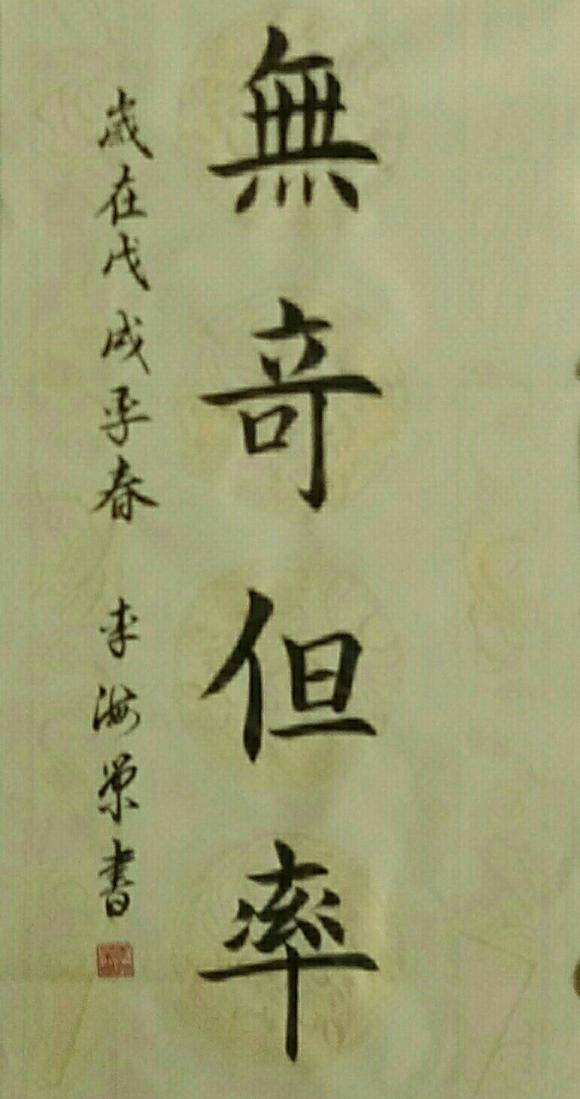 無奇但率
歲在戊戌季春 李海榮書